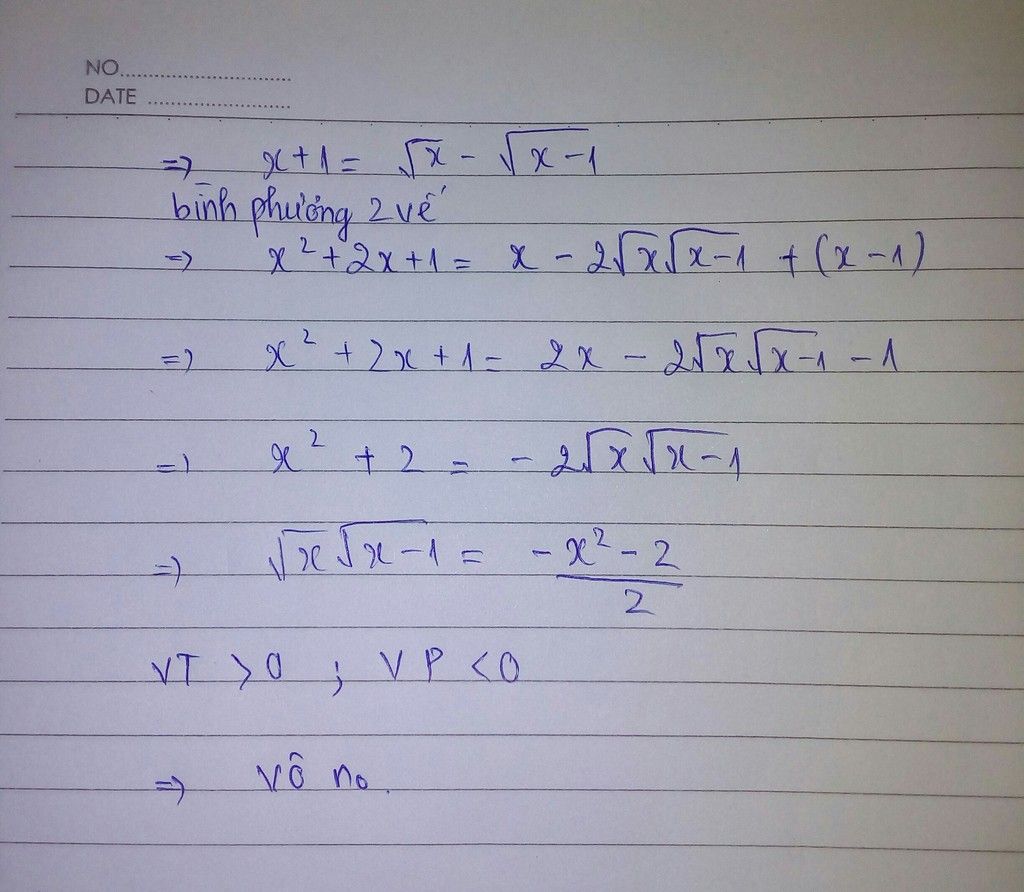 NO..............................
DATE ..........................
=> x + 1 = √x - √(x-1)
bình phương 2 vế
=> x² + 2x + 1 = x - 2√x√(x-1) + (x-1)
=> x² + 2x + 1 = 2x - 2√x√(x-1) - 1
=> x² + 2 = - 2√x√(x-1)
=> √x√(x-1) = (-x² - 2)/2
VT > 0 ; VP < 0
=> vô no.